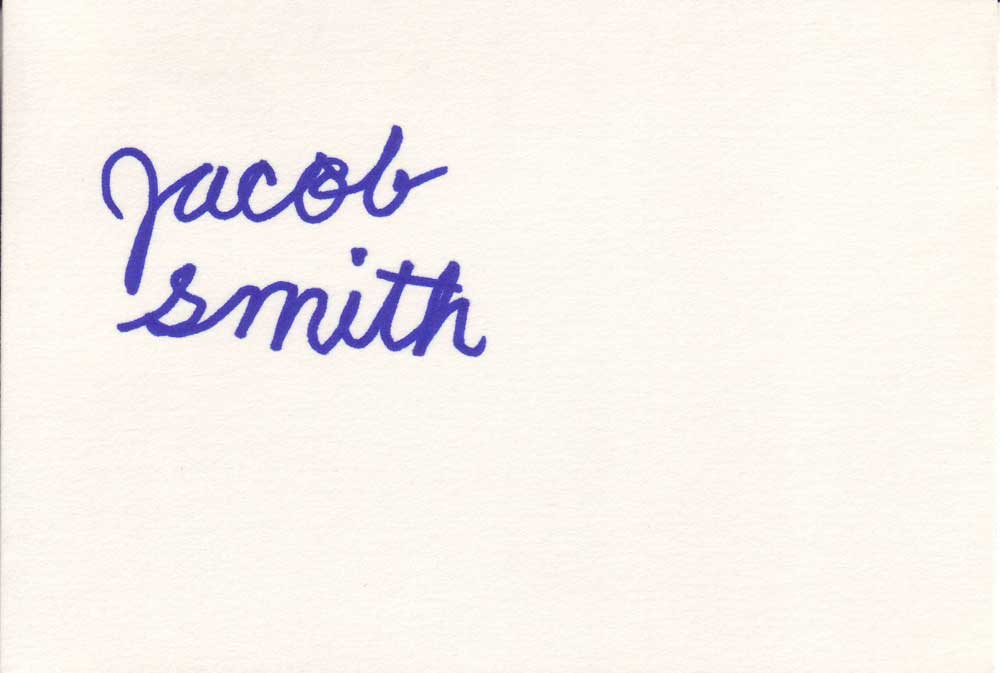 Jacob
smith